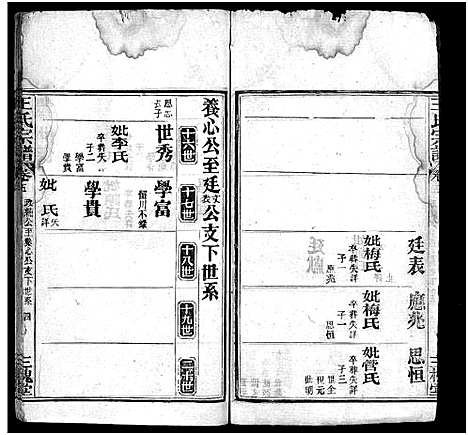 王氏宗譜 卷
三槐堂
廷表
妣梅氏
卒葬失詳
子一
應兆
應兆
妣梅氏
卒葬失詳
子一
思恒
思恒
妣管氏
卒葬失詳
子三
世全
世元
世明
養心公至廷表公支下世系
十六世
十七世
十八世
十九世
二十世
思志
長子
世秀
妣李氏
卒葬失詳
子二
學富
學貴
學富
留川不錄
學貴
妣 氏
失詳
王氏宗譜 卷五
養心公支下世系
四
三槐堂